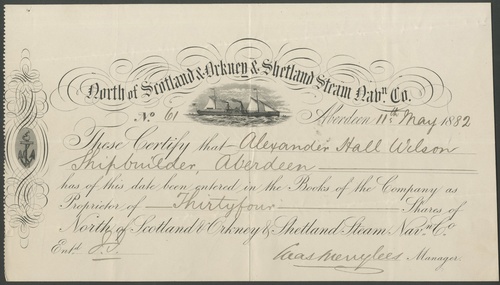 North of Scotland & Orkney & Shetland Steam Navn. Co.
No. 61 Aberdeen 11th May 1882
These Certify that Alexander Hall Wilson
Shipbuilder, Aberdeen
has of this date been entered in the Books of the Company as
Proprietor of Thirtyfour Shares of
North of Scotland & Orkney & Shetland Steam Navn. Co.
Entd. Manager.